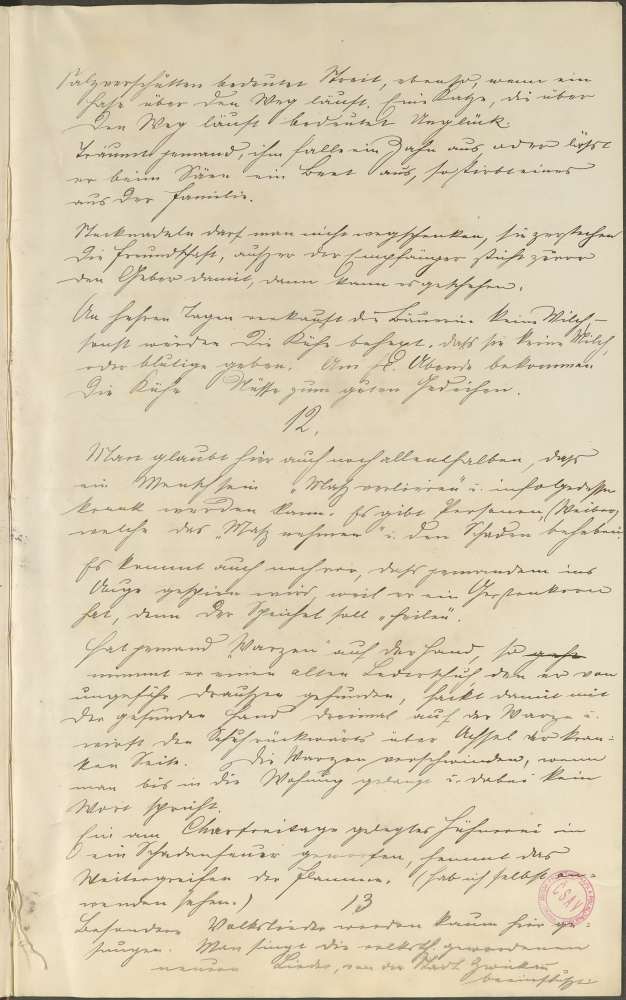 Salzverschütten bedeutet Streit, ebenso, wenn ein
Hase über den Weg läuft. Eine Katze, die über
den Weg läuft bedeutet Unglück.
Träumt jemand, ihm falle ein Zahn aus oder läßt
er beim Säen ein Beet aus, so stirbt eines
aus der Familie.
Stecknadeln darf man nicht wegschenken, sie zerstechen
die Freundschaft, außer der Empfänger sticht zuvor
den Geber damit, dann kann es geschehen.
An hohen Tagen verkauft die Bäuerin keine Milch –
sonst würden die Kühe behext, daß sie keine Milch
oder blutige geben. Am hl. Abende bekommen
die Kühe Nüsse zum guten Gedeihen.
12.
Man glaubt hier auch noch allenthalben, daß
ein Mensch sein „Maß verlieren" u. infolgedessen
krank werden kann. Es gibt Personen, (Weiber)
welche das „Maß nehmen" u. den Schaden beheben.
Es kommt auch noch vor, daß jemandem ins
Auge gespien wird, weil er ein Gerstenkorn
hat, denn der Speichel soll „heilen".
Hat jemand „Warzen" auf der Hand, so geht
nimmt er einen alten Lederschuh, den er von
ungefähr draußen gefunden, hackt damit mit
der gesunden Hand dreimal auf der Warze u.
wirft den Schuh rückwärts über Achsel der kran-
ken Seite. Die Warzen verschwinden, wenn
man bis in die Wohnung gelangt u. dabei kein
Wort spricht.
Ein am Charfreitage gelegtes Hühnerei in
ein Schadenfeuer geworfen, hemmt das
Weitergreifen der Flammen. (Hab ich selbst an-
wenden sehen.)
13
Besondere Volkslieder werden kaum hier ge-
sungen. Man singt die volksth. gewordenen
neuen Lieder, von der Stadt Zwickau
beeinflußt.
CSAV